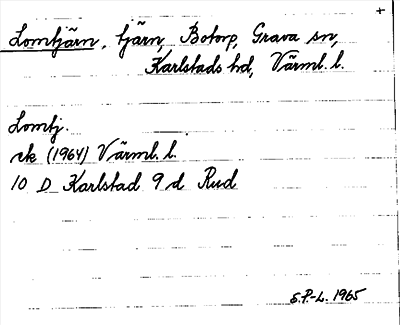 +
Lomtjärn, tjärn, Botorp, Grava sn,
Karlstads hd, Värml. l.
Lomtj.
rk (1964) Värml. l.
10 D Karlstad 9 d Rud
S.P.-L. 1965